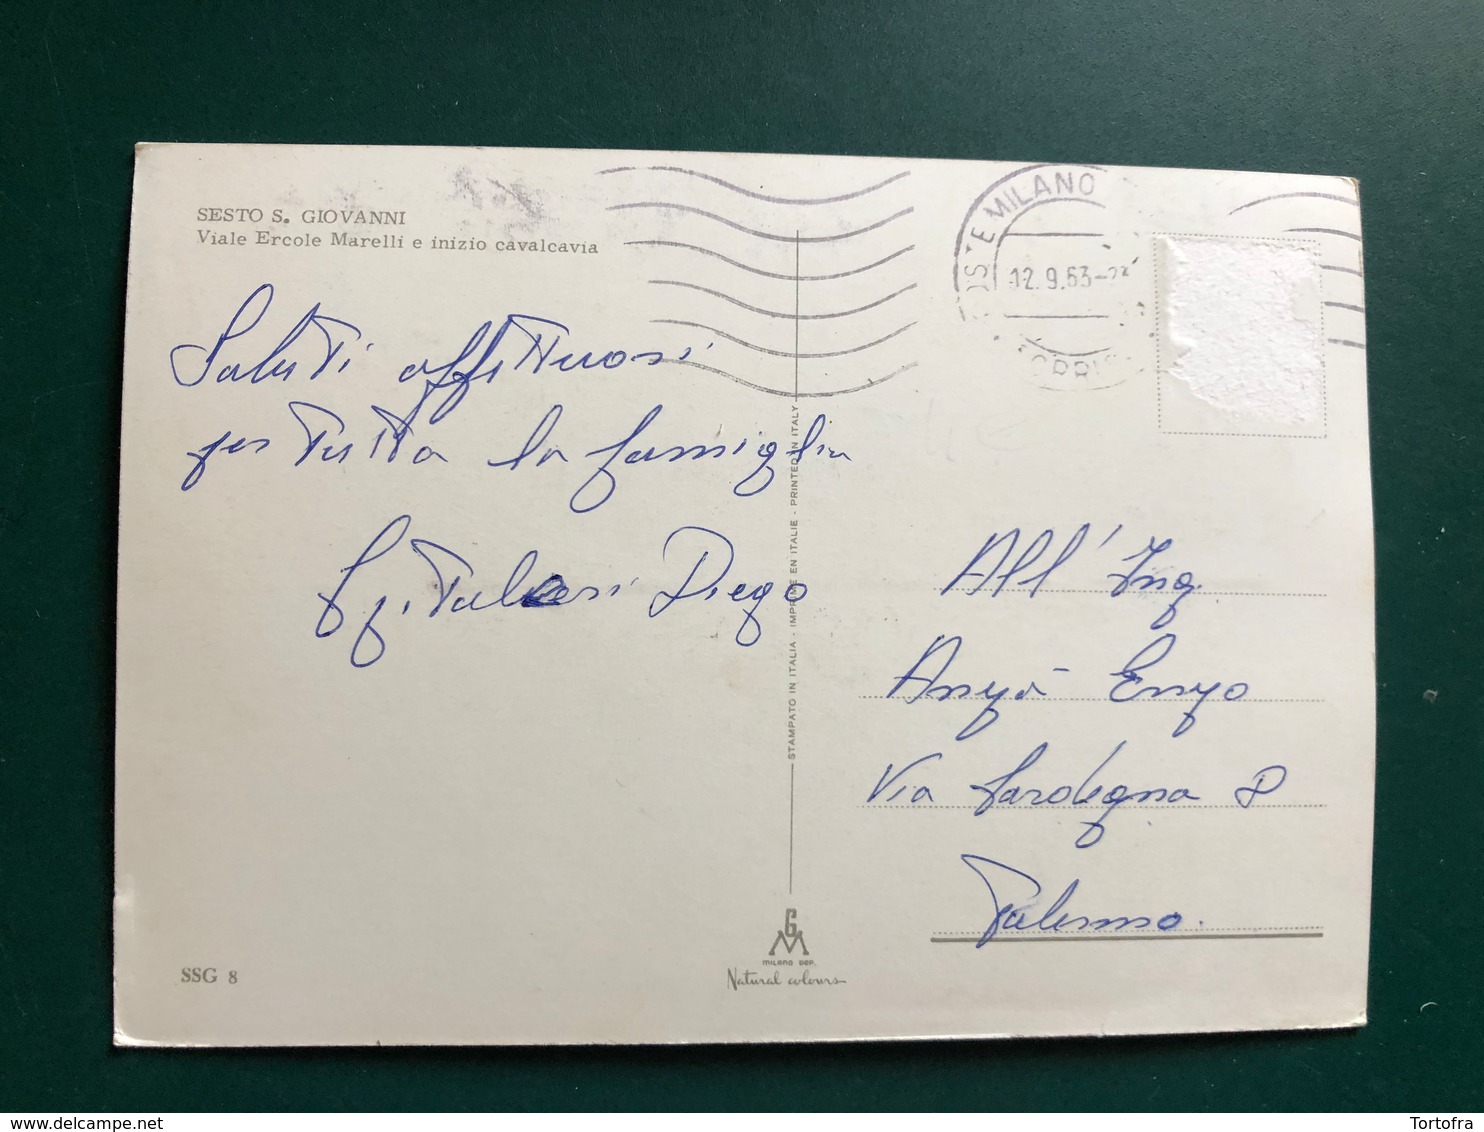 SESTO S. GIOVANNI
Viale Ercole Marelli e inizio cavalcavia
POSTE MILANO
12.9.63-
Saluti affettuosi
per tutta la famiglia
Diego
STAMPATO IN ITALIA - IMPRIMÉ EN ITALIE - PRINTED IN ITALY
All' Ing.
Enzo
Via Sardegna
Palermo.
GM
MILANO DEP.
Natural colours
SSG 8
delcampe.net
Tortofra